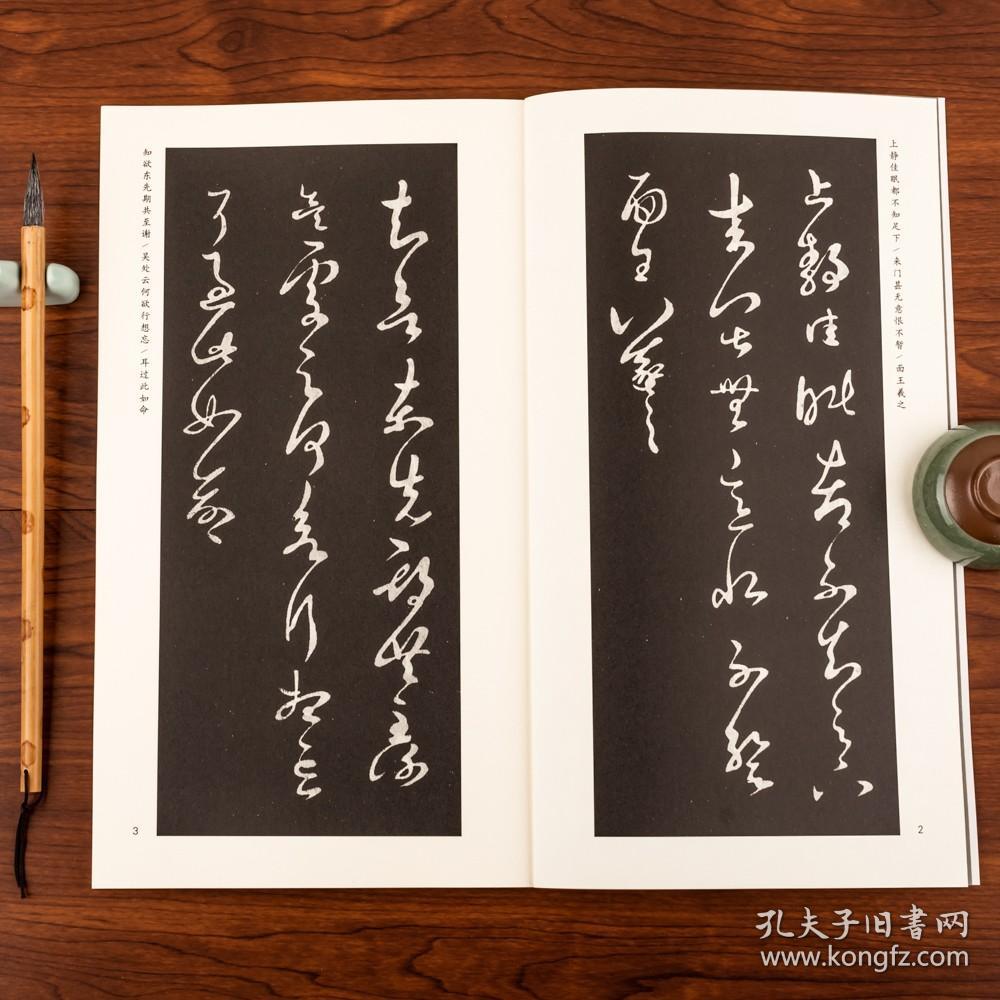 上静佳眠都不知足下/来门甚无意恨不暂/面王羲之
上静佳眠都不知足下
来门甚无意恨不暂
面王羲之
2
知欲东先期共至谢/吴处云何欲行想忘/耳过此如命
知欲东先期共至谢
吴处云何欲行想忘
耳过此如命
3
孔夫子旧書网
www.kongfz.com